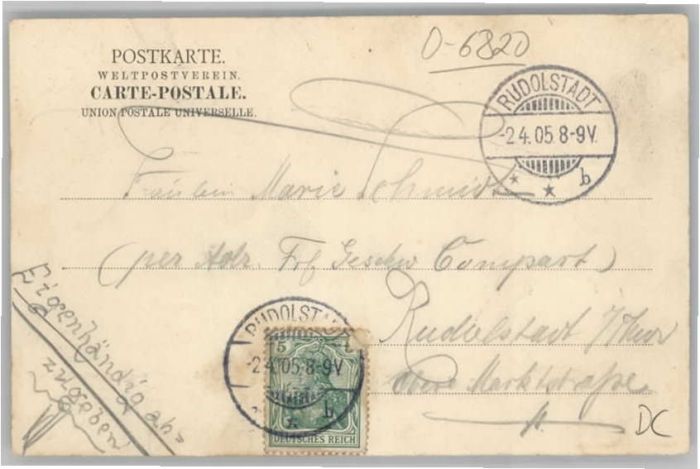 O-6820
POSTKARTE.
WELTPOSTVEREIN.
CARTE-POSTALE.
UNION POSTALE UNIVERSELLE.
RUDOLSTADT
-2.4.05.8-9V.
* * b
Fräulein Marie Schmidt
(per Adr. Frl Geschw Compart)
Rudolstadt i/Thür
obere Marktstraße
Eigenhändig ab=
zugeben
RUDOLSTADT
-2.4.05.8-9V
* b
5
DEUTSCHES REICH
DC